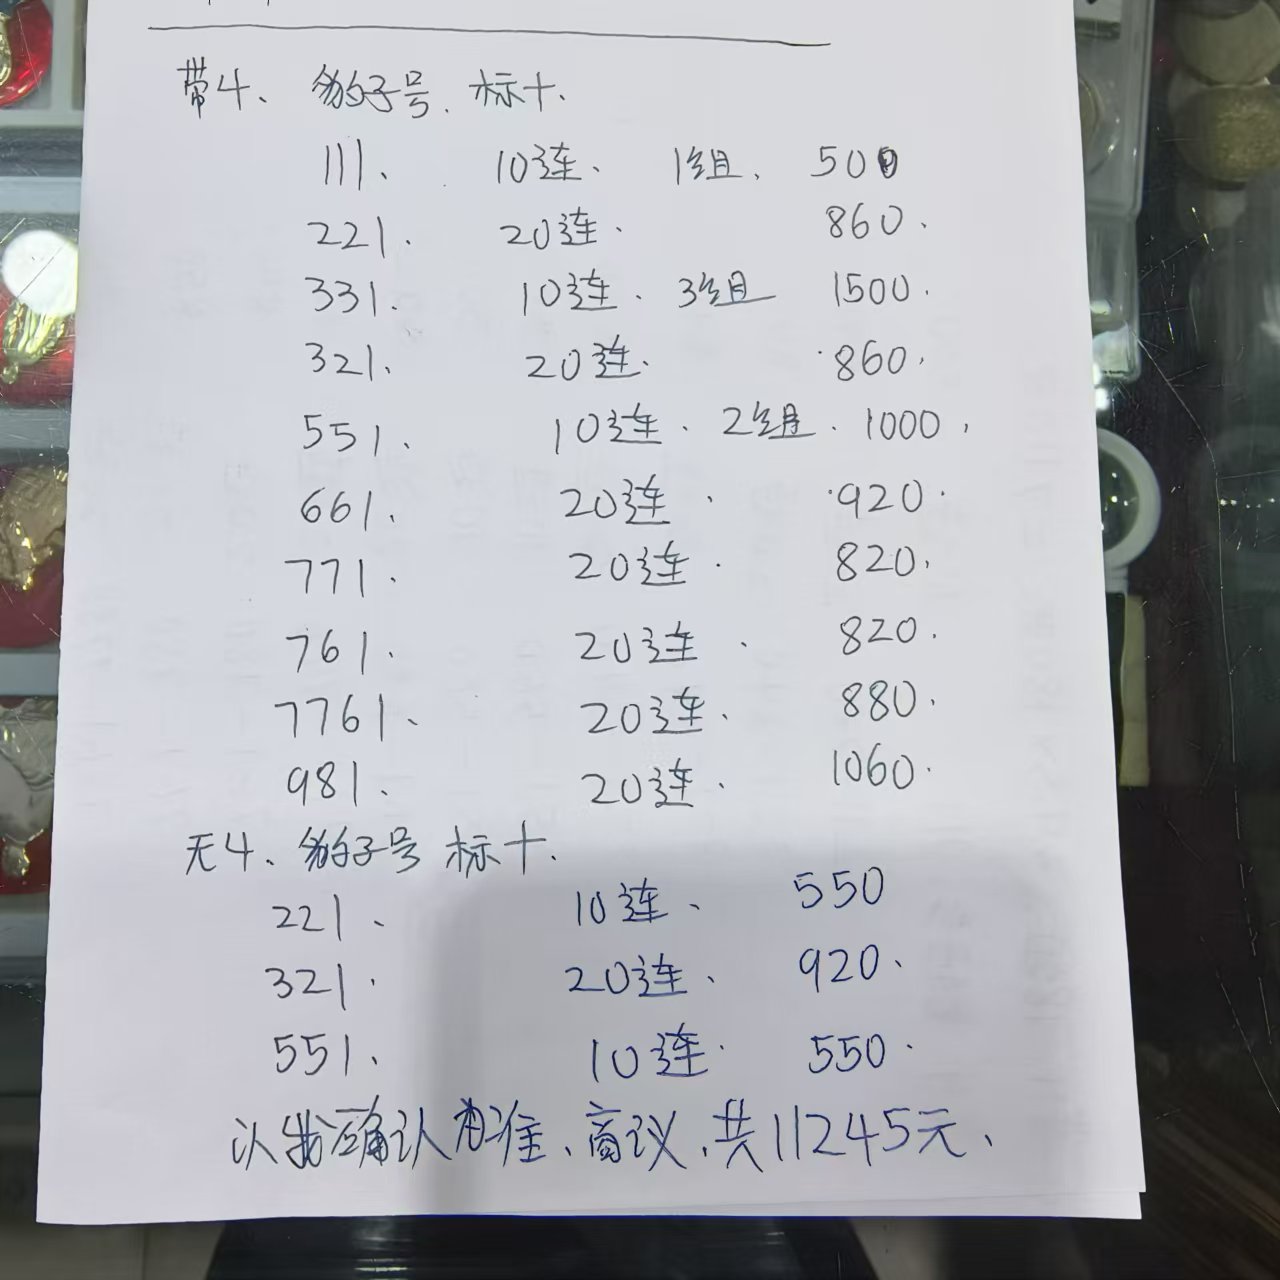 带4、豹子号、标十、
111、 10连、 1组、 500
221. 20连. 860.
331. 10连. 3组 1500.
321、 20连. 860.
551、 10连. 2组. 1000,
661. 20连. 920.
771. 20连. 820.
761. 20连. 820.
7761、 20连. 880.
981、 20连. 1060.
无4、豹子号 标十.
221、 10连、 550
321. 20连、 920.
551、 10连. 550.
以我确认为准、商议,共11245元、